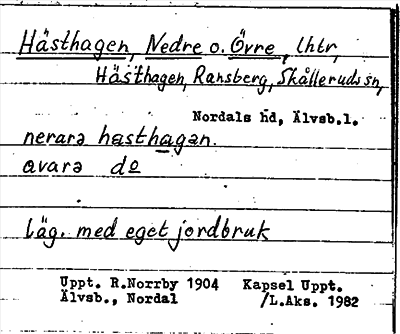 Hästhagen, Nedre o. Övre, lhtr,
Hästhagen, Ransberg, Skållerudssn,
Nordals hd, Älvsb.l.
nerara hasthagan.
avara do
läg. med eget jordbruk
Uppt. R.Norrby 1904 Kapsel Uppt.
Älvsb., Nordal /L.Aks. 1982